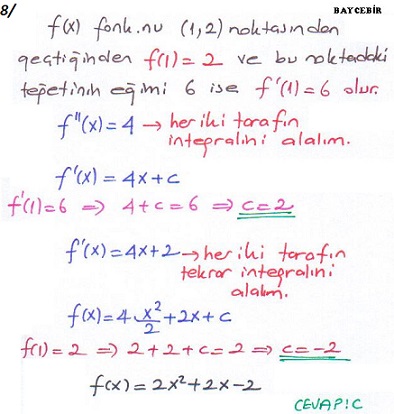 8/ BAYCEBİR
f(x) fonk.nu (1,2) noktasından
geçtiğinden f(1)=2 ve bu noktadaki
teğetinin eğimi 6 ise f'(1)=6 olur.
f''(x)=4 → her iki tarafın
integralini alalım.
f'(x)=4x+c
f'(1)=6 ⇒ 4+c=6 ⇒ c=2
f'(x)=4x+2 → her iki tarafın
tekrar integralini
alalım.
f(x)=4 x²/2 +2x+c
f(1)=2 ⇒ 2+2+c=2 ⇒ c=-2
f(x)=2x²+2x-2
CEVAP!C